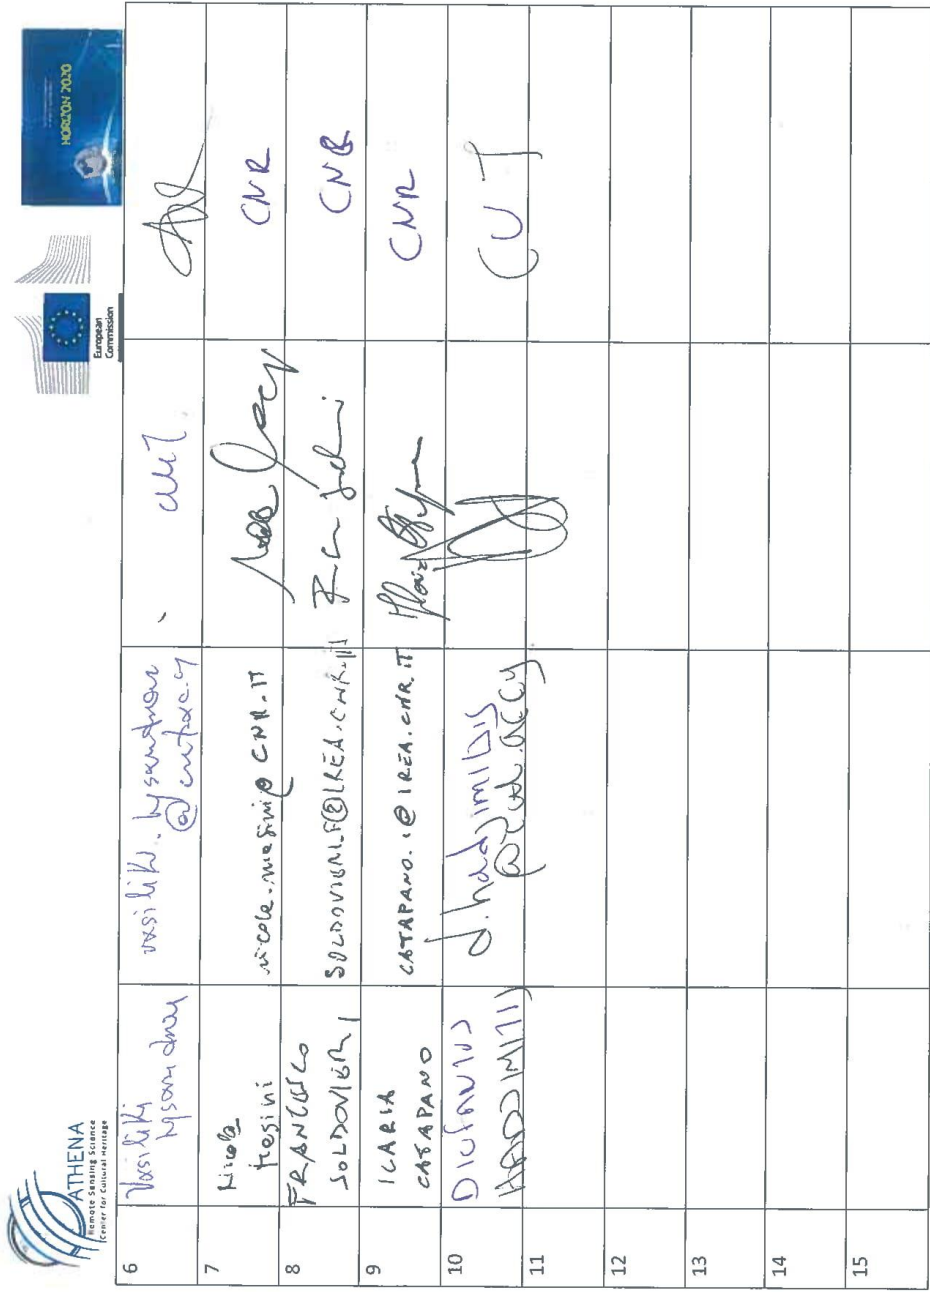 ATHENA
Remote Sensing Science
Center for Cultural Heritage
European
Commission
HORIZON 2020
6
Vasiliki
lysandrou
vasiliki.lysandrou
@cut.ac.cy
CUT.
7
Nicola
Masini
nicola.masini@CNR.IT
CNR
8
FRANCESCO
SOLDOVIERI
SOLDOVIERI.F@IREA.CNR.IT
CNR
9
ILARIA
CATAPANO
CATAPANO.I@IREA.CNR.IT
CNR
10
HADJIMITSIS
d.hadjimitsis
@cut.ac.cy
CUT
11
12
13
14
15